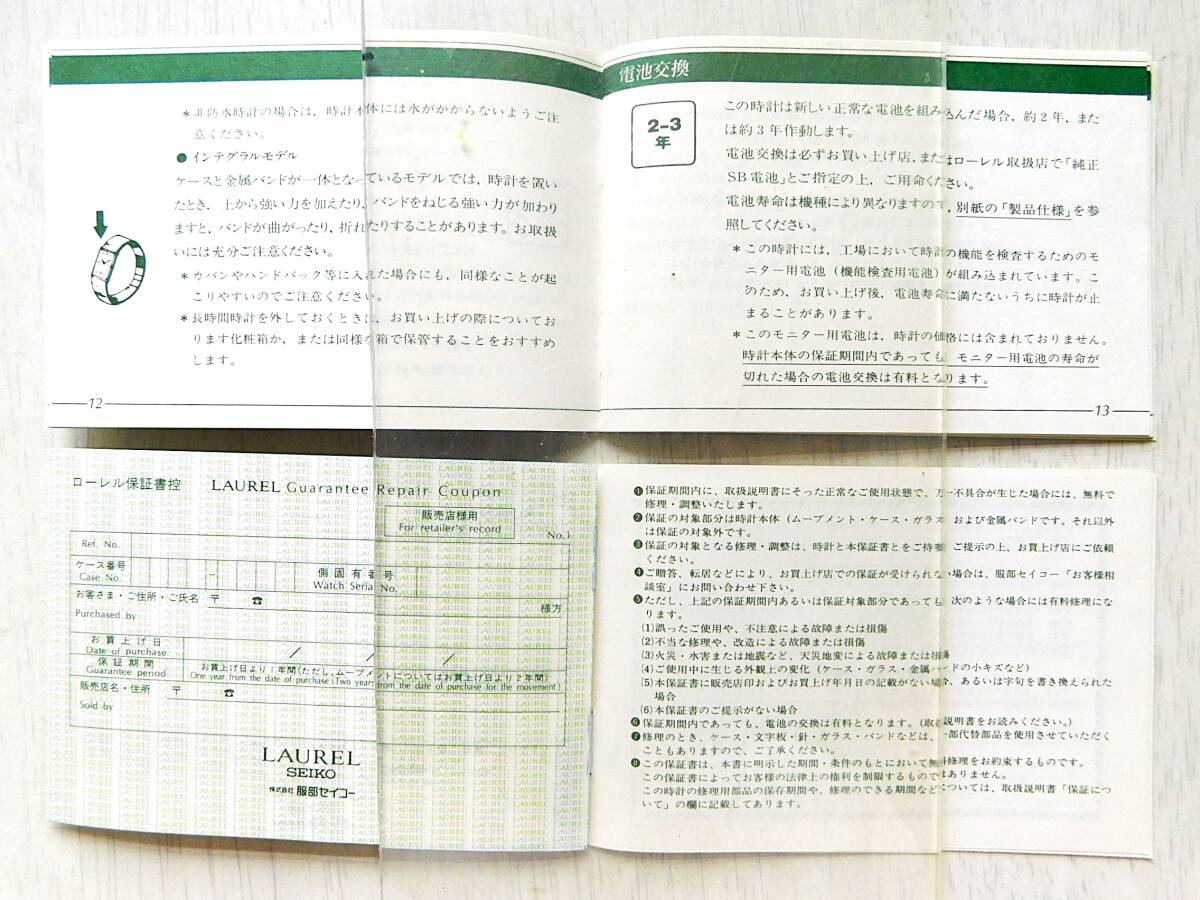 ＊非防水時計の場合は，時計本体には水がかからないようご注
意ください。
●インテグラルモデル
ケースと金属バンドが一体となっているモデルでは，時計を置い
たとき，上から強い力を加えたり，バンドをねじる強い力が加わり
ますと，バンドが曲がったり，折れたりすることがあります。お取扱
いには充分ご注意ください。
＊カバンやハンドバック等に入れた場合にも，同様なことが起
こりやすいのでご注意ください。
＊長時間時計を外しておくときは，お買い上げの際についてお
ります化粧箱か，または同様な箱で保管することをおすすめ
します。
12
電池交換
2-3
年
この時計は新しい正常な電池を組み込んだ場合，約2年，また
は約3年作動します。
電池交換は必ずお買い上げ店，またはローレル取扱店で「純正
SB電池」とご指定の上，ご用命ください。
電池寿命は機種により異なりますので，別紙の「製品仕様」を参
照してください。
＊この時計には，工場において時計の機能を検査するためのモ
ニター用電池（機能検査用電池）が組み込まれています。こ
のため，お買い上げ後，電池寿命に満たないうちに時計が止
まることがあります。
＊このモニター用電池は，時計の価格には含まれておりません。
時計本体の保証期間内であっても，モニター用電池の寿命が
切れた場合の電池交換は有料となります。
13
ローレル保証書控 LAUREL Guarantee Repair Coupon
販売店様用
For retailer's record
No.1
Ref. No.
ケース番号
Case No.
－
側固有番号
Watch Serial No.
お客さま・ご住所・ご氏名 〒 ☎
様方
Purchased by
お買上げ日
Date of purchase
/ / /
保証期間
Guarantee period
お買上げ日より1年間(ただし、ムーブメントについてはお買上げ日より2年間)
One year from the date of purchase (Two years from the date of purchase for the movement)
販売店名・住所 〒 ☎
Sold by
LAUREL
SEIKO
株式会社 服部セイコー
❶保証期間内に、取扱説明書にそった正常なご使用状態で、万一不具合が生じた場合には、無料で
修理・調整いたします。
❷保証の対象部分は時計本体（ムーブメント・ケース・ガラス）および金属バンドです。それ以外
は保証の対象外です。
❸保証の対象となる修理・調整は、時計と本保証書とをご持参ご提示の上、お買上げ店にご依頼
ください。
❹ご贈答、転居などにより、お買上げ店での保証が受けられない場合は、服部セイコー「お客様相
談室」にお問い合わせ下さい。
❺ただし、上記の保証期間内あるいは保証対象部分であっても、次のような場合には有料修理にな
ります。
(1)誤ったご使用や、不注意による故障または損傷
(2)不当な修理や、改造による故障または損傷
(3)火災・水害または地震など、天災地変による故障または損傷
(4)ご使用中に生じる外観上の変化（ケース・ガラス・金属バンドの小キズなど）
(5)本保証書に販売店印およびお買上げ年月日の記載がない場合、あるいは字句を書き換えられた
場合
(6)本保証書のご提示がない場合
❻保証期間内であっても、電池の交換は有料となります。(取扱説明書をお読みください。)
❼修理のとき、ケース・文字板・針・ガラス・バンドなどは、一部代替部品を使用させていただく
こともありますので、ご了承ください。
❽この保証書は、本書に明示した期間・条件のもとにおいて無料修理をお約束するものです。
この保証書によってお客様の法律上の権利を制限するものではありません。
この時計の修理用部品の保存期間や、修理のできる期間などについては、取扱説明書「保証につ
いて」の欄に記載してあります。